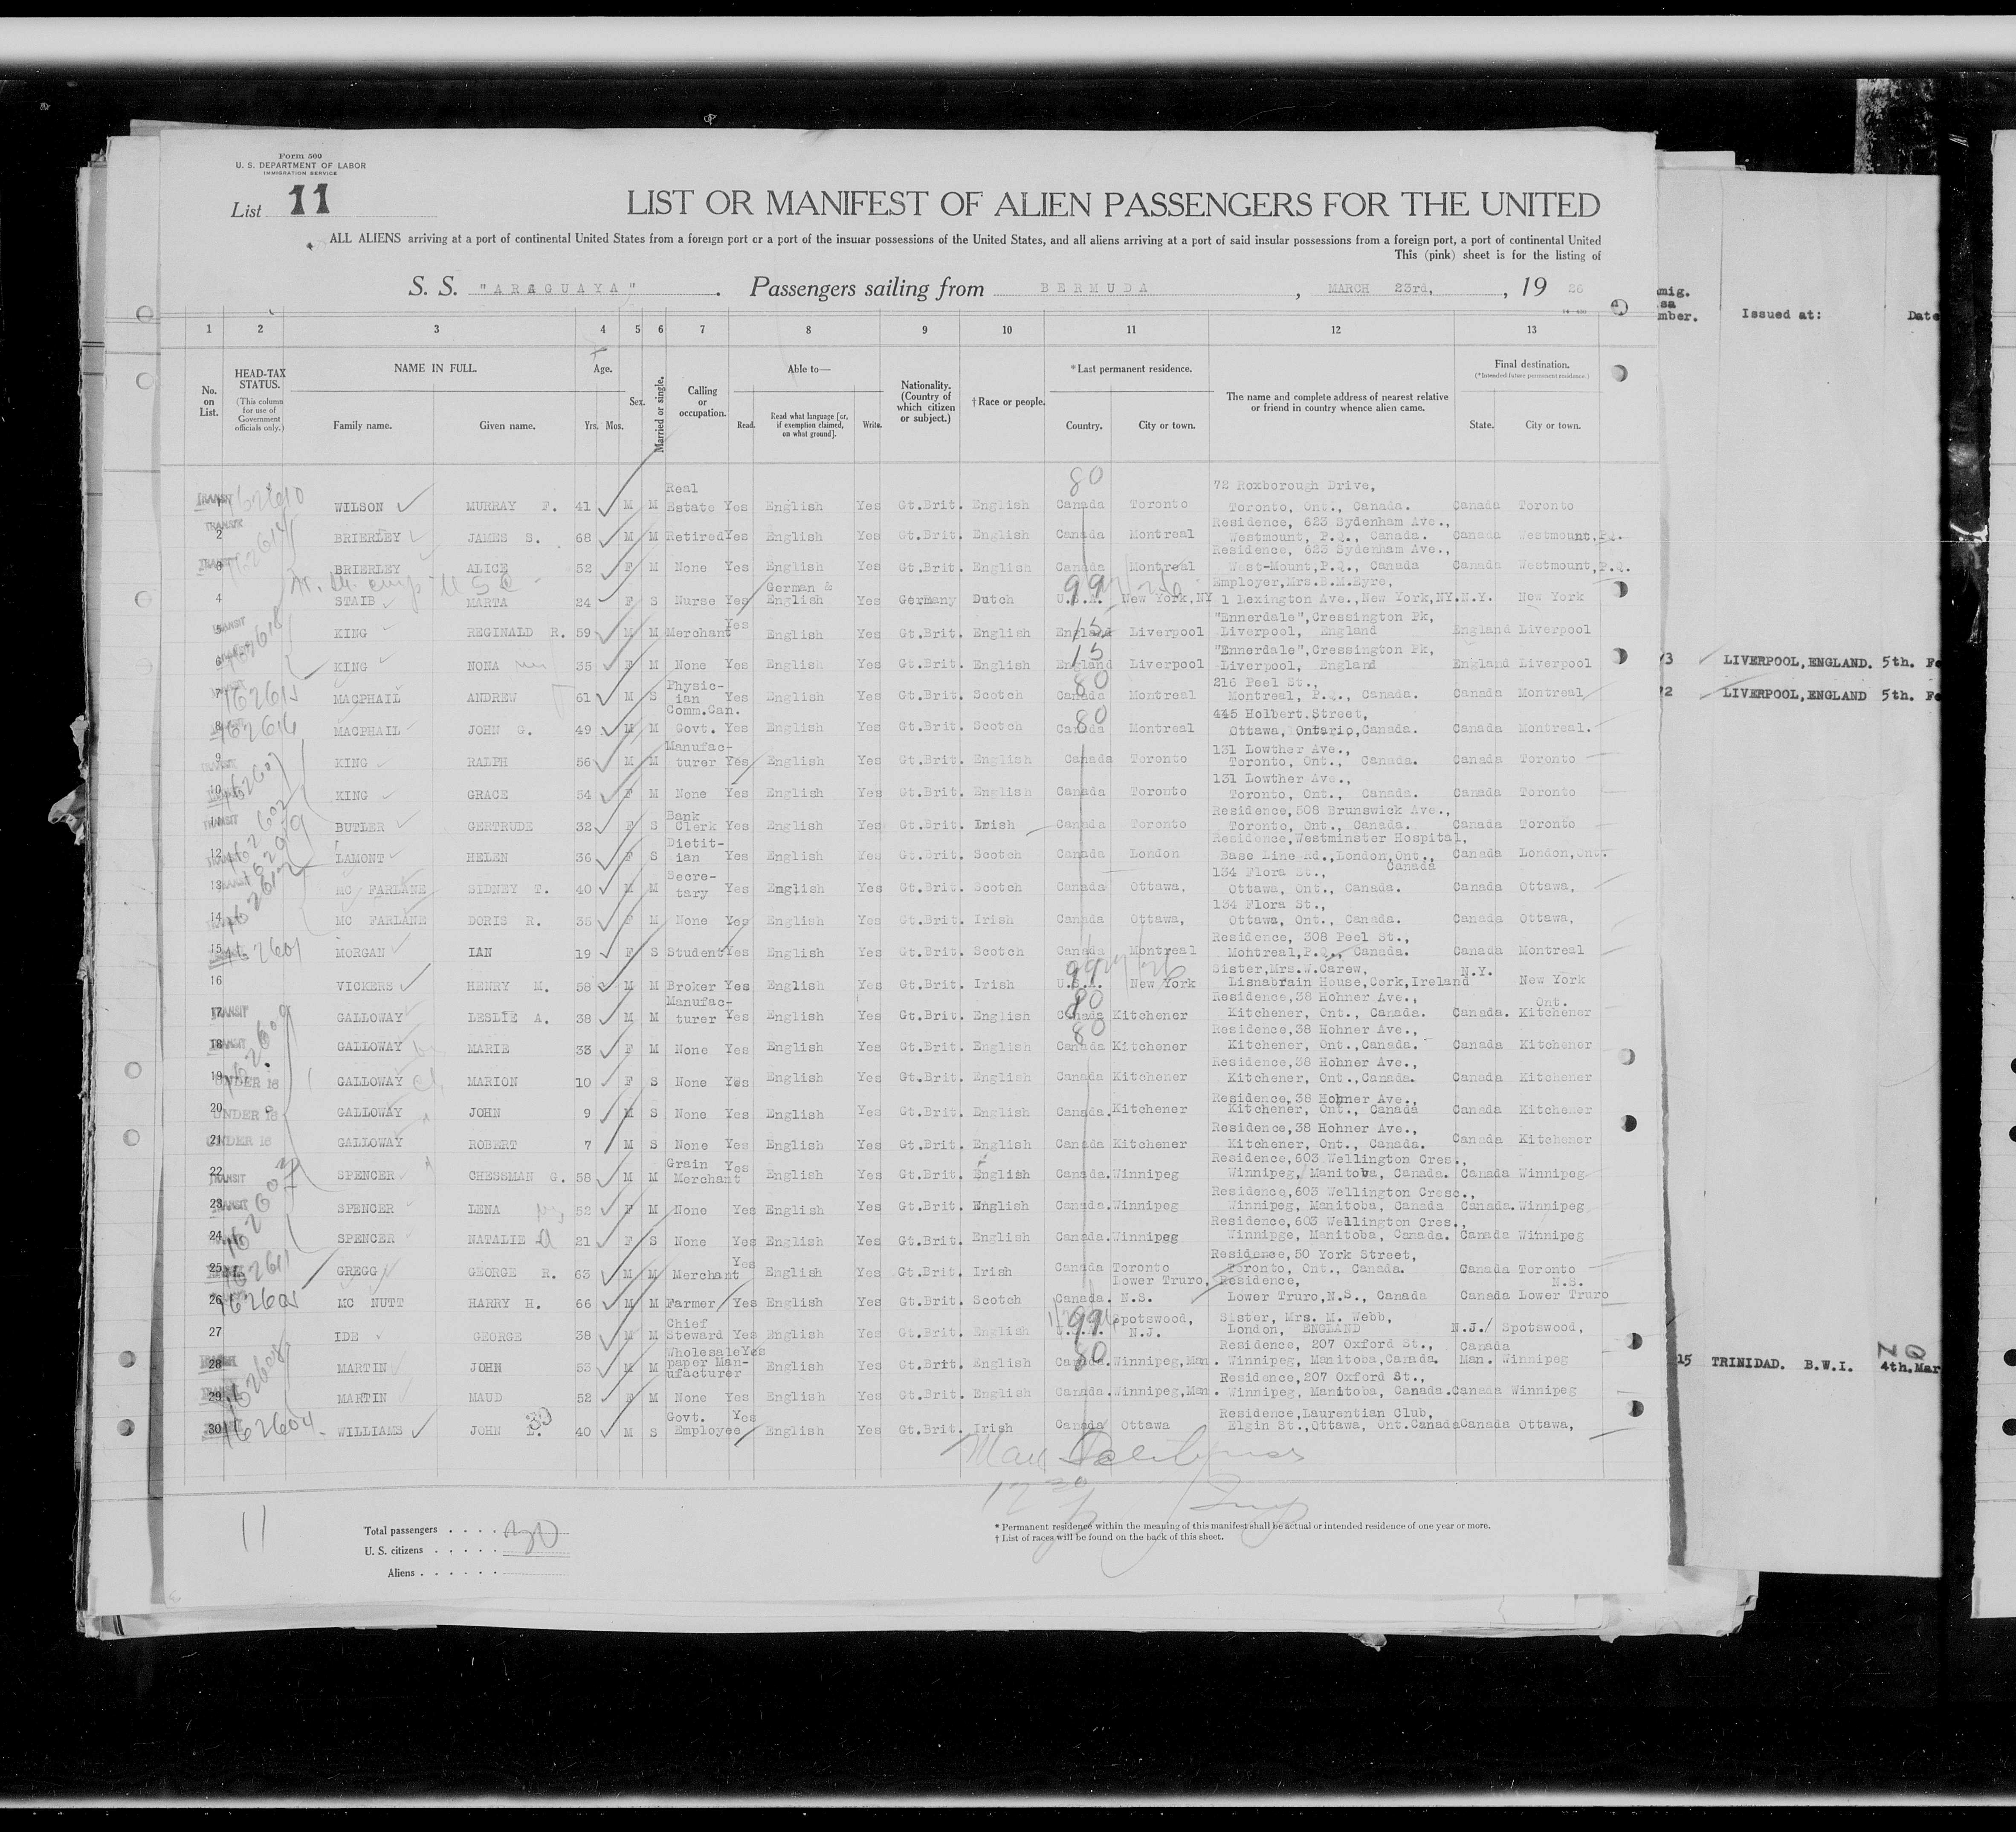 Form 500
U. S. DEPARTMENT OF LABOR
IMMIGRATION SERVICE
List 11
LIST OR MANIFEST OF ALIEN PASSENGERS FOR THE UNITED
ALL ALIENS arriving at a port of continental United States from a foreign port or a port of the insular possessions of the United States, and all aliens arriving at a port of said insular possessions from a foreign port, a port of continental United
This (pink) sheet is for the listing of
S. S. "ARAGUAYA". Passengers sailing from BERMUDA, MARCH 23rd, , 19 26
1 2 3 4 5 6 7 8 9 10 11 12 13
No. on List.
HEAD-TAX STATUS.
(This column for use of Government officials only.)
NAME IN FULL.
Family name. Given name.
Age.
Yrs. Mos.
Sex.
Married or single.
Calling or occupation.
Able to—
Read. Read what language [or, if exemption claimed, on what ground]. Write.
Nationality. (Country of which citizen or subject.)
†Race or people.
*Last permanent residence.
Country. City or town.
The name and complete address of nearest relative or friend in country whence alien came.
Final destination.
(*Intended future permanent residence.)
State. City or town.
1 TRANSIT WILSON MURRAY F. 41 M M Real Estate Yes English Yes Gt.Brit. English Canada Toronto 72 Roxborough Drive, Toronto, Ont., Canada. Canada Toronto
2 TRANSIT BRIERLEY JAMES S. 68 M M Retired Yes English Yes Gt.Brit. English Canada Montreal Residence, 623 Sydenham Ave., Westmount, P.Q., Canada. Canada Westmount, P.Q.
3 TRANSIT BRIERLEY ALICE 52 F M None Yes English Yes Gt.Brit. English Canada Montreal Residence, 623 Sydenham Ave., West-Mount,P.Q., Canada Canada Westmount,P.Q.
4 STAIB MARTA 24 F S Nurse Yes German & English Yes Germany Dutch U.S.A. New York,NY Employer,Mrs.S.M.Eyre, 1 Lexington Ave.,New York,NY. N.Y. New York
5 TRANSIT KING REGINALD R. 59 M M Merchant Yes English Yes Gt.Brit. English England Liverpool "Ennerdale",Cressington Pk, Liverpool, England England Liverpool
6 KING NONA 35 F M None Yes English Yes Gt.Brit. English England Liverpool "Ennerdale",Cressington Pk, Liverpool, England England Liverpool
7 162615 MACPHAIL ANDREW 61 M S Physic-ian Yes English Yes Gt.Brit. Scotch Canada Montreal 216 Peel St., Montreal, P.Q., Canada. Canada Montreal
8 162614 MACPHAIL JOHN G. 49 M M Comm.Can. Govt. Yes English Yes Gt.Brit. Scotch Canada Montreal 445 Holbert.Street, Ottawa, Ontario,Canada. Canada Montreal.
9 KING RALPH 56 M M Manufac-turer Yes English Yes Gt.Brit. English Canada Toronto 131 Lowther Ave., Toronto, Ont., Canada. Canada Toronto
10 KING GRACE 54 F M None Yes English Yes Gt.Brit. English Canada Toronto 131 Lowther Ave., Toronto, Ont., Canada. Canada Toronto
11 TRANSIT BUTLER GERTRUDE 32 F S Bank Clerk Yes English Yes Gt.Brit. Irish Canada Toronto Residence,508 Brunswick Ave., Toronto, Ont., Canada. Canada Toronto
12 LAMONT HELEN 36 F S Dietit-ian Yes English Yes Gt.Brit. Scotch Canada London Residence,Westminster Hospital, Base Line Rd.,London,Ont., Canada Canada London,Ont.
13 TRANSIT MC FARLANE SIDNEY T. 40 M M Secre-tary Yes English Yes Gt.Brit. Scotch Canada Ottawa, 134 Flora St., Ottawa, Ont., Canada. Canada Ottawa,
14 MC FARLANE DORIS R. 36 F M None Yes English Yes Gt.Brit. Irish Canada Ottawa, 134 Flora St., Ottawa, Ont., Canada. Canada Ottawa,
15 162601 MORGAN IAN 19 F S Student Yes English Yes Gt.Brit. Scotch Canada Montreal Residence, 308 Peel St., Montreal,P.Q., Canada. Canada Montreal
16 VICKERS HENRY M. 58 M M Broker Yes English Yes Gt.Brit. Irish U.S.A. New York Sister,Mrs.W.Carew, Lisnabrain House,Cork,Ireland N.Y. New York
17 TRANSIT GALLOWAY LESLIE A. 38 M M Manufac-turer Yes English Yes Gt.Brit. English Canada Kitchener Residence,38 Hohner Ave., Kitchener, Ont., Canada. Canada. Ont. Kitchener
18 TRANSIT GALLOWAY MARIE 33 F M None Yes English Yes Gt.Brit. English Canada Kitchener Residence,38 Hohner Ave., Kitchener, Ont.,Canada. Canada Kitchener
19 UNDER 16 GALLOWAY MARION 10 F S None Yes English Yes Gt.Brit. English Canada Kitchener Residence,38 Hohner Ave., Kitchener, Ont.,Canada. Canada Kitchener
20 UNDER 16 GALLOWAY JOHN 9 M S None Yes English Yes Gt.Brit. English Canada. Kitchener Residence,38 Hohner Ave., Kitchener, Ont., Canada Canada Kitchener
21 UNDER 16 GALLOWAY ROBERT 7 M S None Yes English Yes Gt.Brit. English Canada Kitchener Residence,38 Hohner Ave., Kitchener, Ont., Canada. Canada Kitchener
22 TRANSIT SPENCER CHESSMAN G. 58 M M Grain Merchant Yes English Yes Gt.Brit. English Canada. Winnipeg Residence,603 Wellington Cres., Winnipeg, Manitoba, Canada. Canada Winnipeg
23 TRANSIT SPENCER LENA 52 F M None Yes English Yes Gt.Brit. English Canada. Winnipeg Residence,603 Wellington Cresc., Winnipeg, Manitoba, Canada Canada. Winnipeg
24 SPENCER NATALIE 21 F S None Yes English Yes Gt.Brit. English Canada. Winnipeg Residence,603 Wellington Cres., Winnipge, Manitoba, Canada. Canada Winnipeg
25 162611 GREGG GEORGE R. 63 M M Merchant Yes English Yes Gt.Brit. Irish Canada Toronto Residence,50 York Street, Toronto, Ont., Canada. Canada Toronto
26 162605 MC NUTT HARRY H. 66 M M Farmer Yes English Yes Gt.Brit. Scotch Canada. Lower Truro, N.S. Residence, Lower Truro,N.S., Canada Canada N.S. Lower Truro
27 IDE GEORGE 38 M M Chief Steward Yes English Yes Gt.Brit. English U.S.A. Spotswood, N.J. Sister, Mrs. M. Webb, London, ENGLAND N.J. Spotswood,
28 MARTIN JOHN 53 M M Wholesale paper Man-ufacturer Yes English Yes Gt.Brit. English Canada. Winnipeg,Man. Residence, 207 Oxford St., Winnipeg, Manitoba,Canada. Canada Man. Winnipeg
29 MARTIN MAUD 52 F M None Yes English Yes Gt.Brit. English Canada. Winnipeg,Man. Residence,207 Oxford St., Winnipeg, Manitoba, Canada. Canada Winnipeg
30 162604 WILLIAMS JOHN 40 M S Govt. Employee Yes English Yes Gt.Brit. Irish Canada Ottawa Residence,Laurentian Club, Elgin St.,Ottawa, Ont.Canada Canada Ottawa,
11
Total passengers . . . . 30
U. S. citizens . . . . .
Aliens . . . . . .
* Permanent residence within the meaning of this manifest shall be actual or intended residence of one year or more.
† List of races will be found on the back of this sheet.
mig.
sa
mber. Issued at: Date
73 LIVERPOOL,ENGLAND. 5th. Fe
72 LIVERPOOL,ENGLAND 5th. Fe
15 TRINIDAD. B.W.I. 4th.Mar